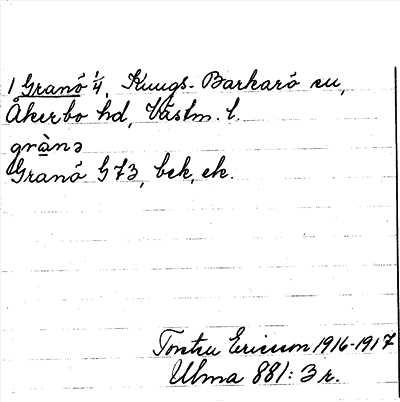 1 Granö 1/4, Kungs-Barkarö sn,
Åkerbo hd, Västm. l.
grànə
Granö G 73, bek, ek.
Torsten Ericsson 1916-1917
Ulma 881:3 r.